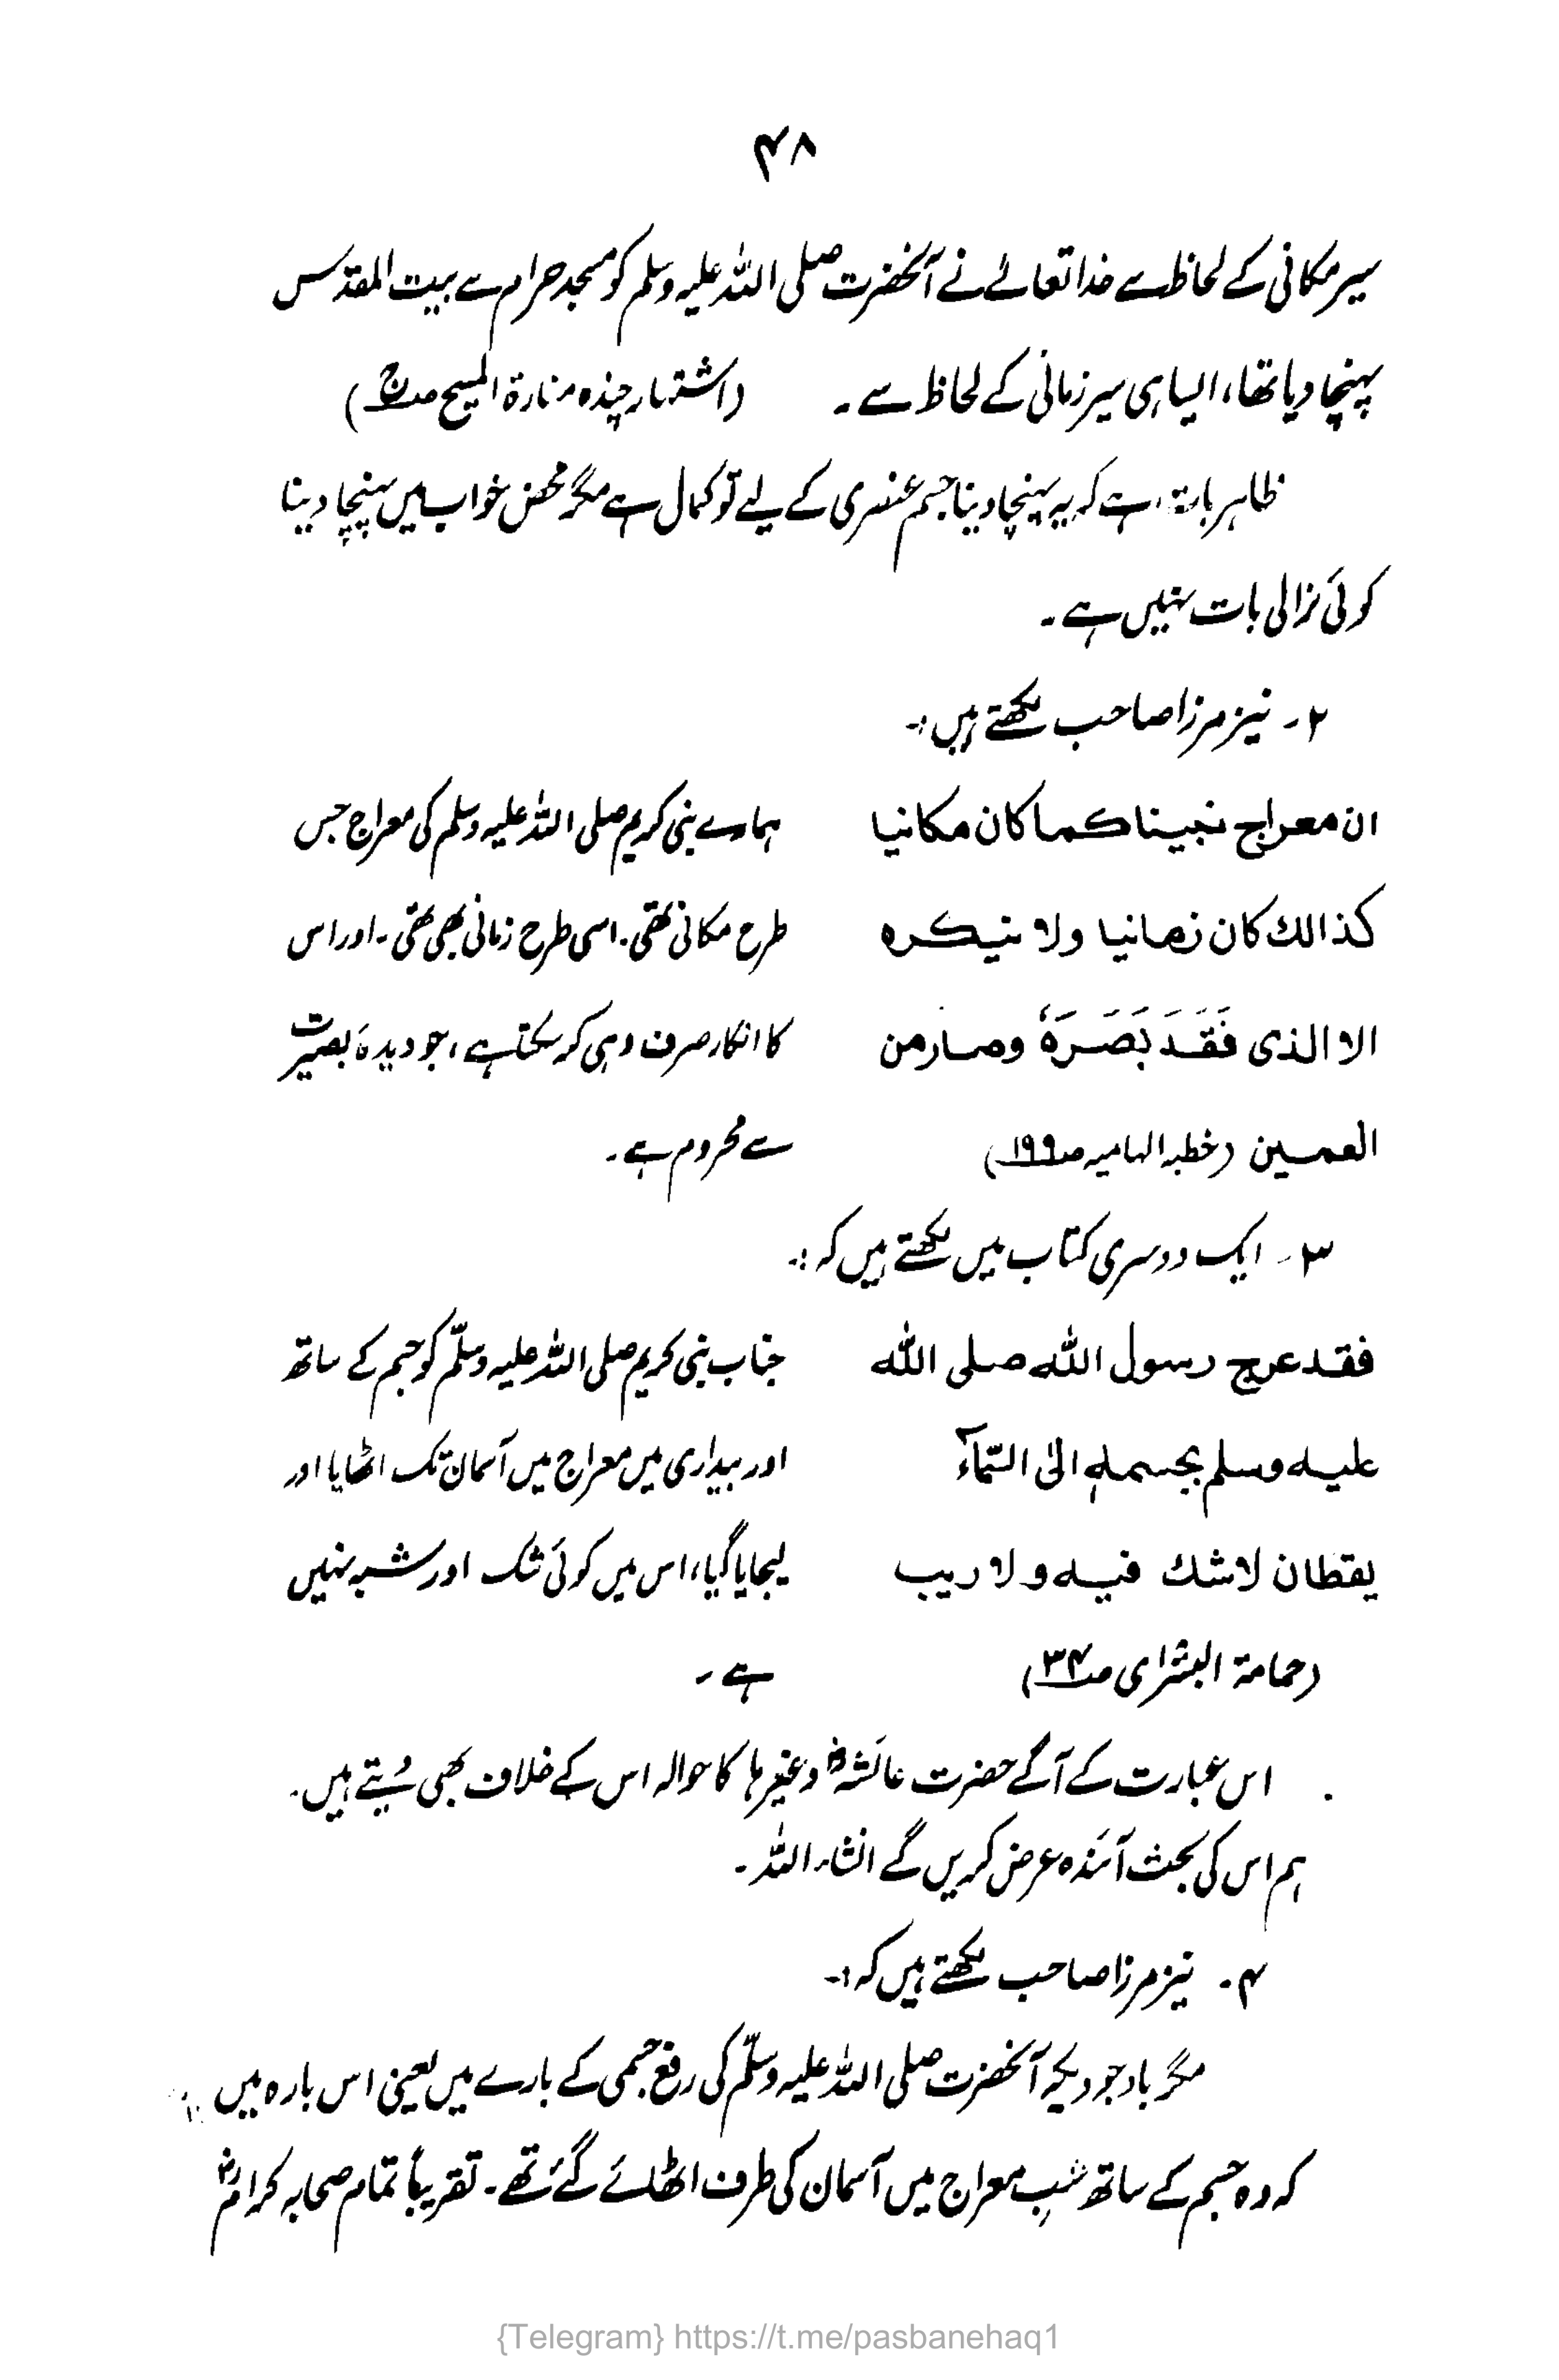 ۴۸
سیر مکانی کے لحاظ سے خدا تعالےٰ نے آنحضرت صلی اللہ علیہ وسلم کو مسجد حرام سے بیت المقدس
پہنچا دیا تھا، ایسا ہی سیر زمانی کے لحاظ سے۔ (اشتہار چندہ منارۃ المسیح صج)
ظاہر بات ہے کہ یہ پہنچا دینا جسم عنصری کے لیے تو کمال ہے مگر محض خواب میں پہنچا دینا
کوئی نرالی بات نہیں ہے۔
۲۔ نیز مرزا صاحب لکھتے ہیں:۔
ان معراج نبینا کما کان مکانیا
کذالك کان زمانیا ولا ینکره
الا الذی فَقَدَ بَصَرَہٗ وصار من
العمین (خطبہ الہامیہ ص۱۹۹)
ہمارے نبی کریم صلی اللہ علیہ وسلم کی معراج جس
طرح مکانی تھی۔ اسی طرح زمانی بھی تھی۔ اور اس
کا انکار صرف وہی کر سکتا ہے، جو دیدۂ بصیرت
سے محروم ہے۔
۳۔ ایک دوسری کتاب میں لکھتے ہیں کہ:۔
فقد عرج رسول اللہ صلی اللہ
علیہ وسلم بجسمہٖ الیٰ السّمآء
یقظان لا شك فیہ ولا ریب
(حمامۃ البشرٰی ص۳۴)
جناب نبی کریم صلی اللہ علیہ وسلّم کو جسم کے ساتھ
اور بیداری میں معراج میں آسمان تک اٹھایا اور
لیجایا گیا، اس میں کوئی شک اور شبہ نہیں
ہے۔
اس عبارت کے آگے حضرت عائشہؓ وغیرہا کا حوالہ اس کے خلاف بھی دیتے ہیں۔
ہم اس کی بحث آئندہ عرض کریں گے انشاء اللہ۔
۴۔ نیز مرزا صاحب لکھتے ہیں کہ:۔
مگر باوجودیکہ آنحضرت صلی اللہ علیہ وسلّم کی رفع جسمی کے بارے میں یعنی اس بارہ میں
کہ وہ جسم کے ساتھ شبِ معراج میں آسمان کی طرف اٹھائے گئے تھے۔ تقریباً تمام صحابہ کرامؓ
{Telegram} https://t.me/pasbanehaq1